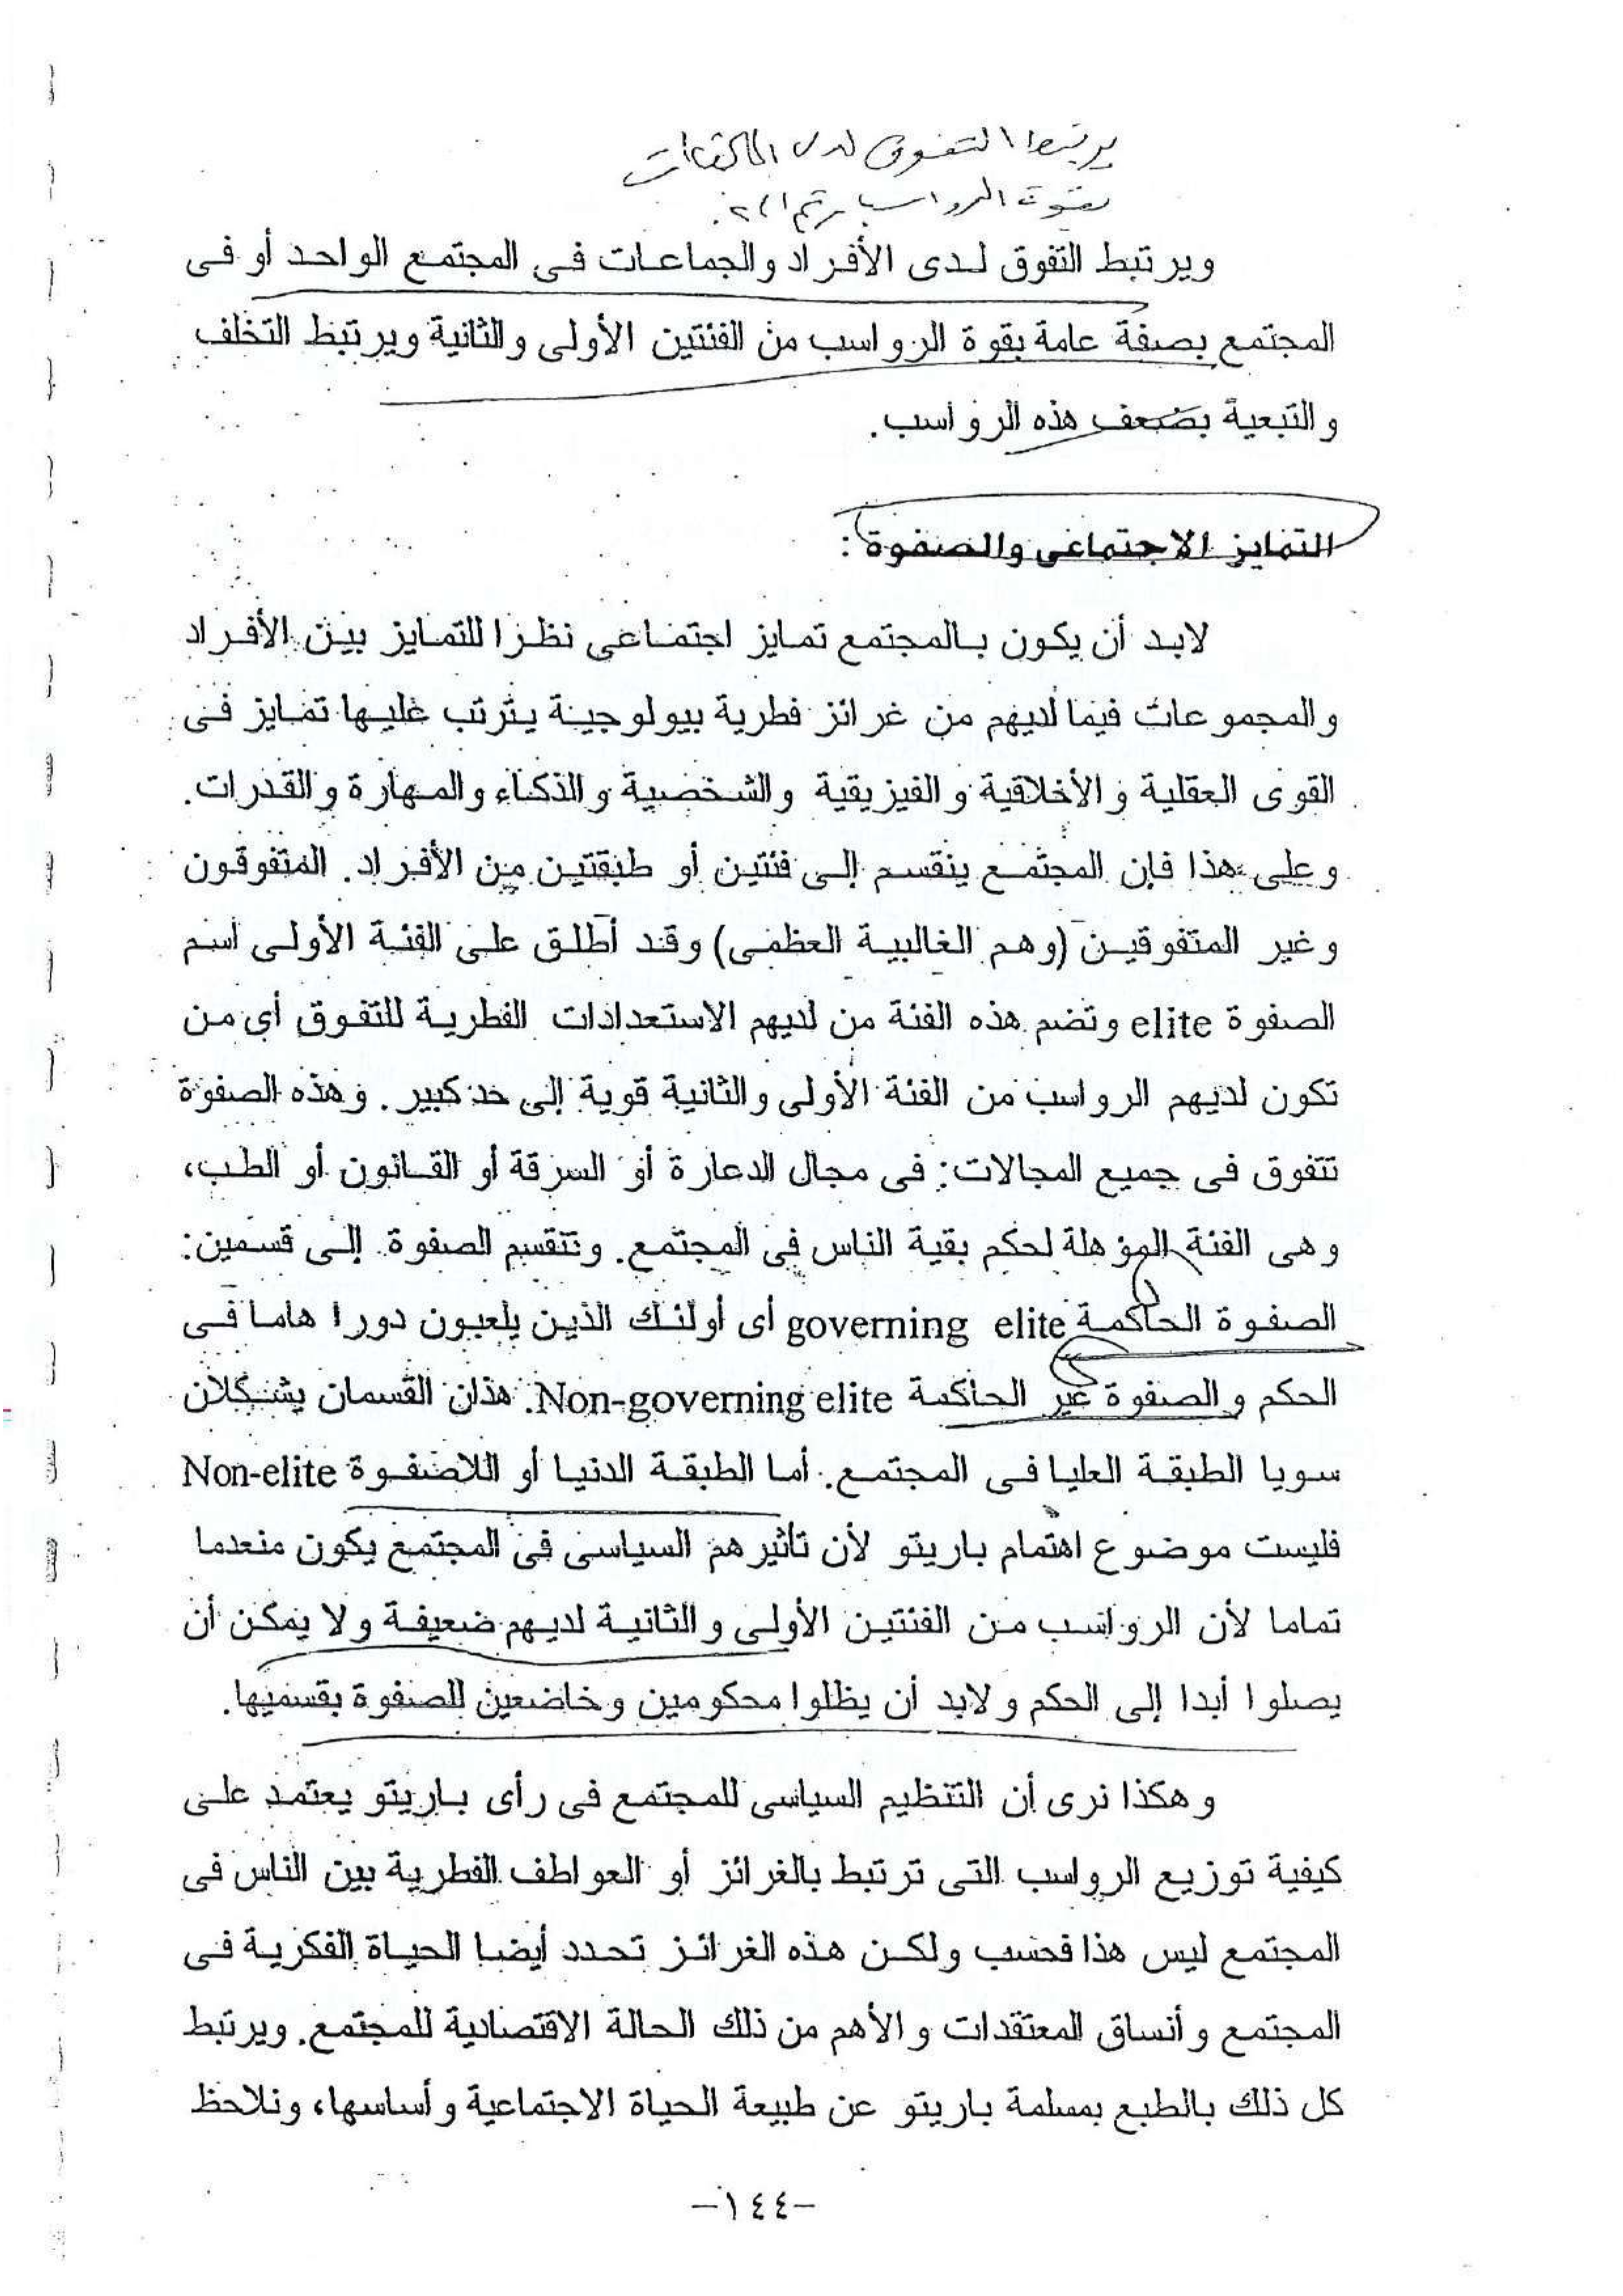 يرتبط التفوق لدى
بقوة الرواسب رقم ١، ٢.
ويرتبط التفوق لدى الأفراد والجماعات فى المجتمع الواحد أو فى
المجتمع بصفة عامة بقوة الرواسب من الفئتين الأولى والثانية ويرتبط التخلف
والتبعية بضعف هذه الرواسب.
التمايز الاجتماعى والصفوة :
لابد أن يكون بالمجتمع تمايز اجتماعى نظرا للتمايز بين الأفراد
والمجموعات فيما لديهم من غرائز فطرية بيولوجية يترتب عليها تمايز فى
القوى العقلية والأخلاقية والفيزيقية والشخصية والذكاء والمهارة والقدرات.
وعلى هذا فإن المجتمع ينقسم إلى فئتين أو طبقتين من الأفراد. المتفوقون
وغير المتفوقين (وهم الغالبية العظمى) وقد أطلق على الفئة الأولى اسم
الصفوة elite وتضم هذه الفئة من لديهم الاستعدادات الفطرية للتفوق أى من
تكون لديهم الرواسب من الفئة الأولى والثانية قوية إلى حد كبير. وهذه الصفوة
تتفوق فى جميع المجالات: فى مجال الدعارة أو السرقة أو القانون أو الطب،
وهى الفئة المؤهلة لحكم بقية الناس فى المجتمع. وتنقسم الصفوة إلى قسمين:
الصفوة الحاكمة governing elite أى أولئك الذين يلعبون دورا هاما فى
الحكم والصفوة غير الحاكمة Non-governing elite. هذان القسمان يشكلان
سويا الطبقة العليا فى المجتمع. أما الطبقة الدنيا أو اللاصفوة Non-elite
فليست موضوع اهتمام باريتو لأن تأثيرهم السياسى فى المجتمع يكون منعدما
تماما لأن الرواسب من الفئتين الأولى والثانية لديهم ضعيفة ولا يمكن أن
يصلوا أبدا إلى الحكم ولابد أن يظلوا محكومين وخاضعين للصفوة بقسميها.
وهكذا نرى أن التنظيم السياسى للمجتمع فى رأى باريتو يعتمد على
كيفية توزيع الرواسب التى ترتبط بالغرائز أو العواطف الفطرية بين الناس فى
المجتمع ليس هذا فحسب ولكن هذه الغرائز تحدد أيضا الحياة الفكرية فى
المجتمع وأنساق المعتقدات والأهم من ذلك الحالة الاقتصادية للمجتمع. ويرتبط
كل ذلك بالطبع بمسلمة باريتو عن طبيعة الحياة الاجتماعية وأساسها، ونلاحظ
-١٤٤-